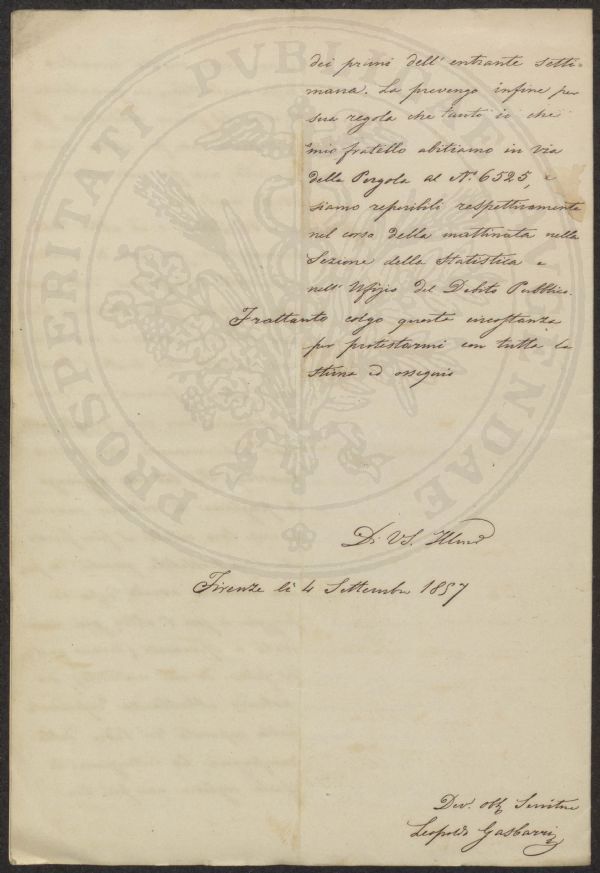 dei primi dell' entrante setti=
mana. La prevengo infine per
sua regola che tanto io che
mio fratello abitiamo in via
della Pergola al N.° 6525, e
siamo reperibili respettivamente
nel corso della mattinata nella
Sezione della Statistica e
nell' Ufizio del Debito Pubblico.
Frattanto colgo questa circostanza
per protestarmi con tutta la
stima ed ossequio
Di VS. Illma
Firenze li 4 Settembre 1857
Dev. obb Servitore
Leopoldo Gasbarri
PROSPERITATI PVBLICAE AVGENDAE